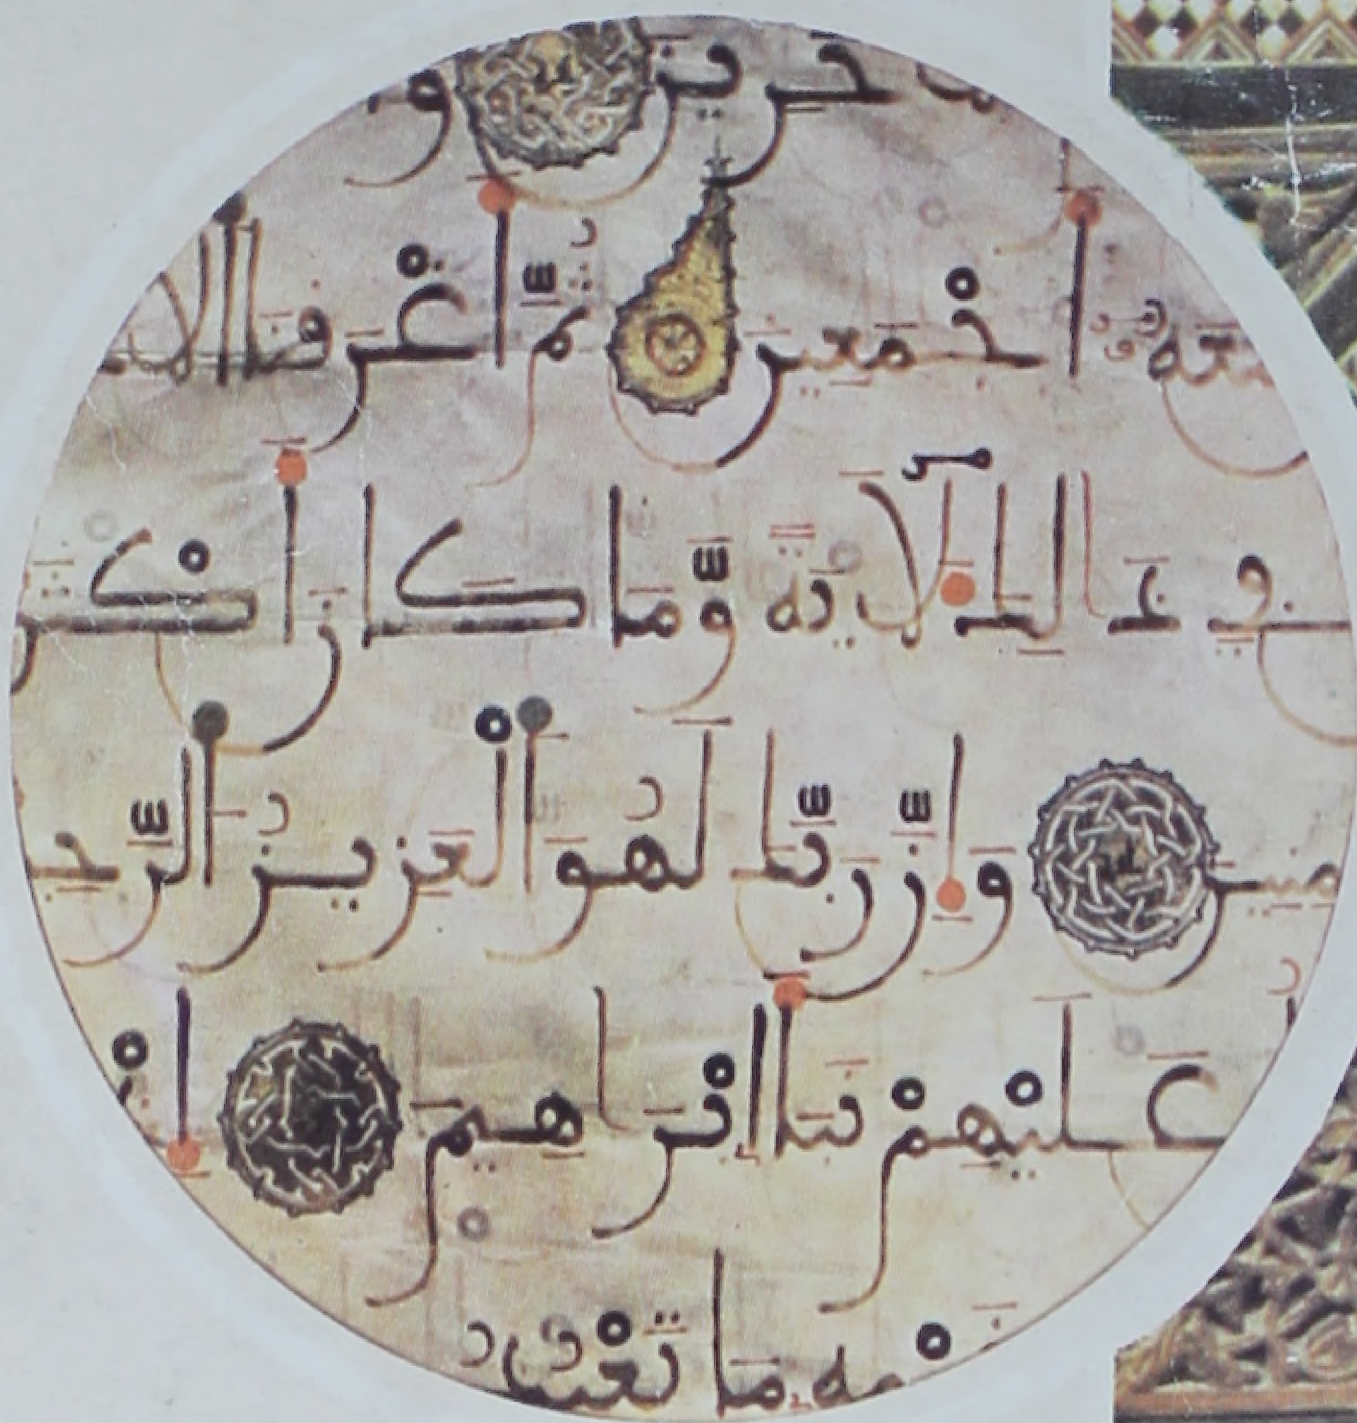 خرين و
معه أَجْمَعِينَ ثُمَّ أَغْرَقْنَا الا
في ذَٰلِكَ لَآيَةً وَّمَا كَانَ أَكْثَر
منين وَإِنَّ رَبَّكَ لَهُوَ الْعَزِيزُ الرَّحِيـ
عَلَيْهِمْ نَبَأَ إِبْرَاهِيمَ إِذْ
ـمه مَا تَعْبُدُ